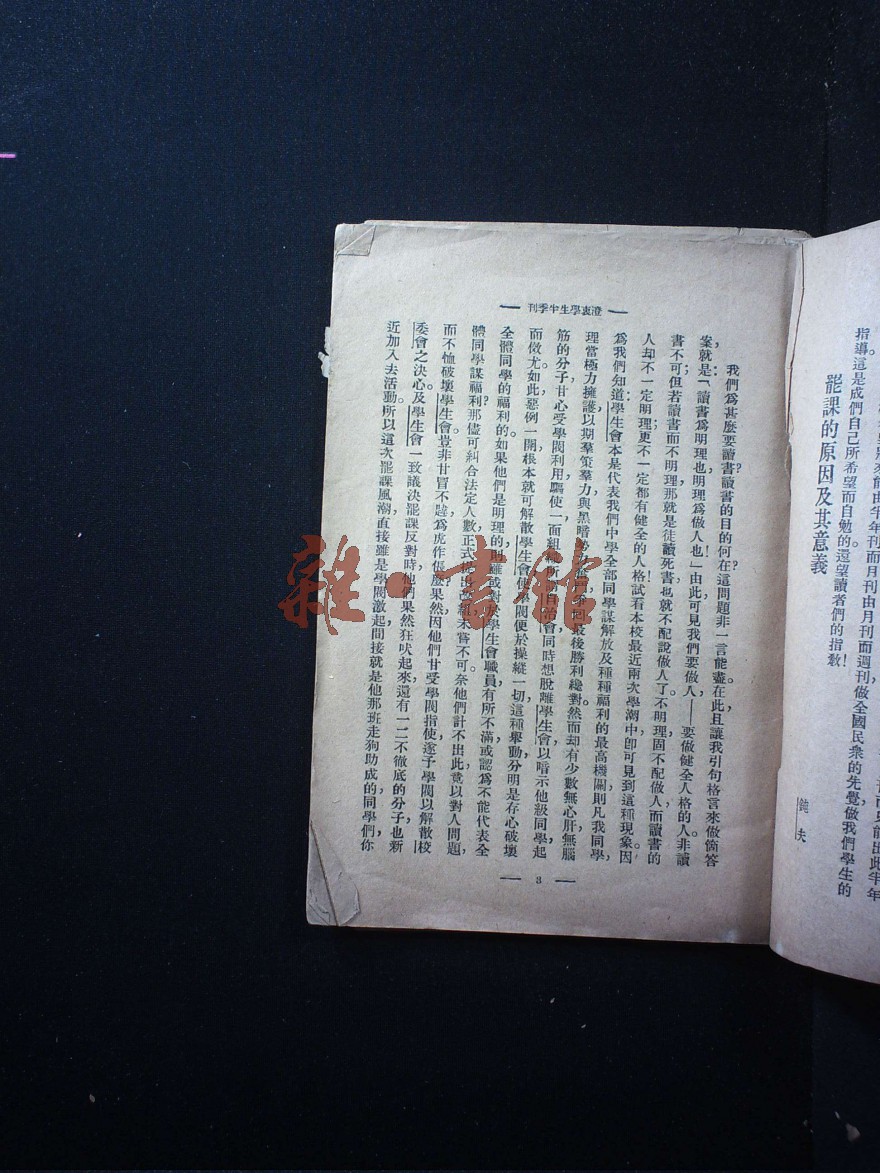 年半此出能更而
指導。這是成們自己所希望而自勉的。還望讀者們的指教!
罷課的原因及其意義
鈍夫
澄衷學生半季刊
我們爲甚麼要讀書?讀書的目的何在?這問題非一言能盡。在此,且讓我引句格言來做箇答
案,就是:「讀書爲明理也,明理爲做人也!」由此可見我們要做人——要做健全人格的人。非讀
書不可;但若讀書而不明理,那就是徒讀死書,也就不配說做人了。不明理固不配做人,而讀書的
人却不一定明理;更不一定都有健全的人格!試看本校最近兩次學潮中,即可見到這種現象。因
爲我們知道:學生會本是代表我們中學全部同學謀解放及種種福利的最高機關,則凡我同學,
理當極力擁護,以期羣策羣力,與黑暗最後勝利纔對。然而却有少數無心肝無腦
筋的分子,甘心受學閥利用,驅使,一面組織所謂自治會,同時想脫離學生會,以暗示他級同學,起
而傚尤。如此,惡例一開,根本就可解散學生會,使學閥便於操縱一切。這種舉動,分明是存心破壞
全體同學的福利的。如果他們是明理的,則雖或對於學生會職員,有所不滿,或認爲不能代表全
體同學謀福利?那儘可糾合法定人數,正式提出改組,未嘗不可。奈他們計不出此,竟以對人問題,
而不恤破壞學生會。豈非甘冒不韙,爲虎作倀麽?果然,因他們甘受學閥指使,遂予學閥以解散校
委會之決心。及學生會一致議決罷課反對時,他們果然狂吠起來,還有一二不徹底的分子,也新
近加入去活動。所以這次罷課風潮,直接雖是學閥激起,間接就是他那班走狗助成的,同學們,你
3
雜·書館